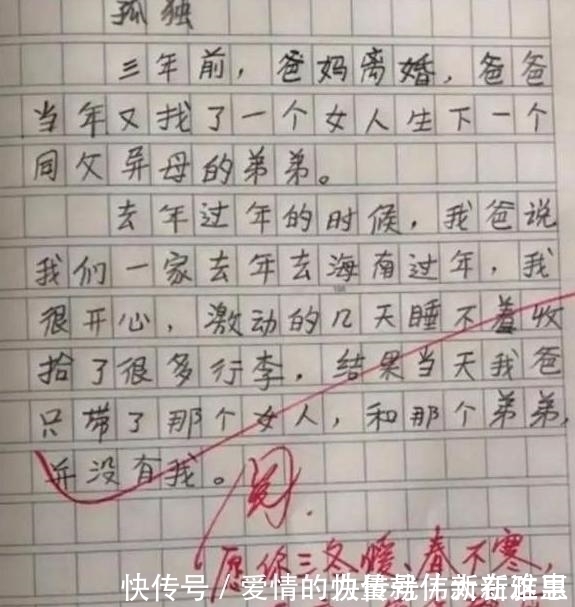 孤独
三年前，爸妈离婚，爸爸
当年又找了一个女人生下一个
同父异母的弟弟。
去年过年的时候，我爸说
我们一家去年去海南过年，我
很开心，激动的几天睡不着收
拾了很多行李，结果当天我爸
只带了那个女人，和那个弟弟，
并没有我。
阅.
愿你三冬暖、春不寒，
快传号／爱情的